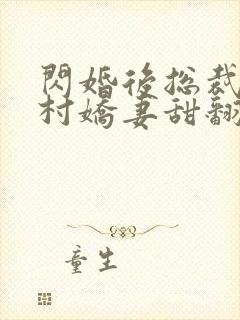 閃婚後總裁
村嬌妻甜翻
童生